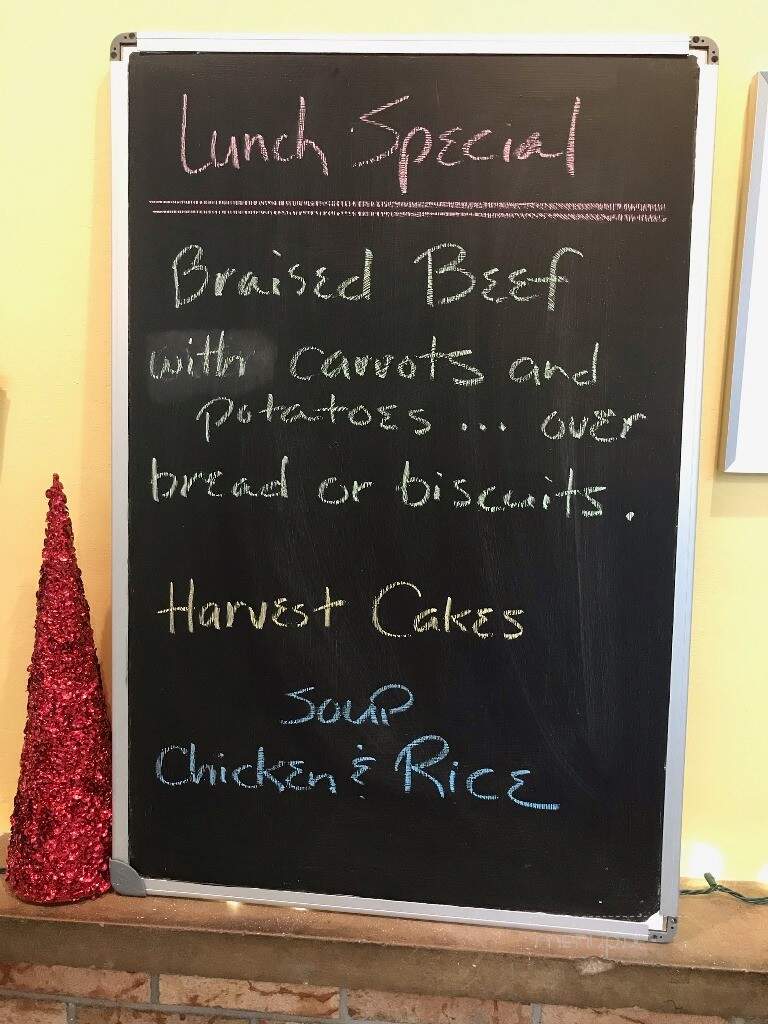 Lunch Special
Braised Beef
with carrots and
potatoes ... over
bread or biscuits.
Harvest Cakes
Soup
Chicken & Rice